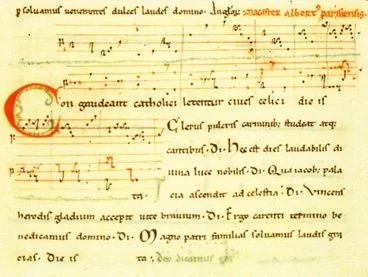 psolvamus venerantes dulces laudes domino. Magister albert' parisiensis.
Congaudeant catholici letentur cives celici die is
ta. Clerus pulcris carminib; studeat atq;
cantibus. Di. Hec est dies laudabilis di
uina luce nobilis. Di. Qua iacob; pala
cia ascendit ad celestia. Di. Vincens
herodis gladium accepit uite brauium. Di. Ergo carenti termino be
nedicamus domino. Di. Magno patri familias soluamus laudis gra
cias. Die is ta. deo dicamus